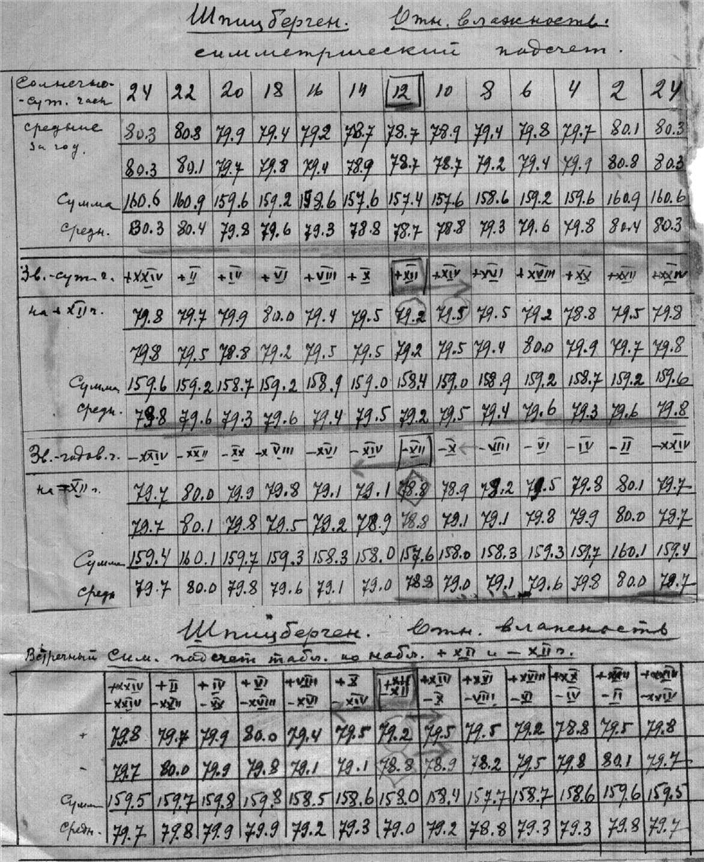 Шпицберген. Отн. влажность.
симметрический подсчет.
Солнечно- 24 22 20 18 16 14 12 10 8 6 4 2 24
-сут. часы
средние 80.3 80.8 79.9 79.4 79.2 78.7 78.7 78.9 79.4 79.8 79.7 80.1 80.3
за год.
80.3 80.1 79.7 79.8 79.4 78.9 78.7 78.7 79.2 79.4 79.9 80.8 80.3
Сумма 160.6 160.9 159.6 159.2 158.6 157.6 157.4 157.6 158.6 159.2 159.6 160.9 160.6
средн. 80.3 80.4 79.8 79.6 79.3 78.8 78.7 78.8 79.3 79.6 79.8 80.4 80.3
Зв.-сут. ч. +XXIV +II +IV +VI +VIII +X +XII +XIV +XVI +XVIII +XX +XXII +XXIV
на +XII ч. 79.8 79.7 79.9 80.0 79.4 79.5 79.2 79.5 79.5 79.2 78.8 79.5 79.8
79.8 79.5 78.8 79.2 79.5 79.5 79.2 79.5 79.4 80.0 79.9 79.7 79.8
Сумма 159.6 159.2 158.7 159.2 158.9 159.0 158.4 159.0 158.9 159.2 158.7 159.2 159.6
средн. 79.8 79.6 79.3 79.6 79.4 79.5 79.2 79.5 79.4 79.6 79.3 79.6 79.8
Зв.-годов. ч. -XXIV -XXII -XX -XVIII -XVI -XIV -XII -X -VIII -VI -IV -II -XXIV
на -XII ч. 79.7 80.0 79.9 79.8 79.1 79.1 78.8 78.9 79.2 79.5 79.8 80.1 79.7
79.7 80.1 79.8 79.5 79.2 78.9 78.8 79.1 79.1 79.8 79.9 80.0 79.7
Сумма 159.4 160.1 159.7 159.3 158.3 158.0 157.6 158.0 158.3 159.3 159.7 160.1 159.4
средн 79.7 80.0 79.8 79.6 79.1 79.0 78.8 79.0 79.1 79.6 79.8 80.0 79.7
Шпицберген. Отн. влажность
Встречный Сим. подсчет табл. по набл. +XII и -XII ч.
+XXIV +II +IV +VI +VIII +X +XII +XIV +XVI +XVIII +XX +XXII +XXIV
-XXIV -XXII -XX -XVIII -XVI -XIV -XII -X -VIII -VI -IV -II -XXIV
+ 79.8 79.7 79.9 80.0 79.4 79.5 79.2 79.5 79.5 79.2 78.8 79.5 79.8
- 79.7 80.0 79.9 79.8 79.1 79.1 78.8 78.9 78.2 79.5 79.8 80.1 79.7
Сумм 159.5 159.7 159.8 159.8 158.5 158.6 158.0 158.4 157.7 158.7 158.6 159.6 159.5
средн. 79.7 79.8 79.9 79.9 79.2 79.3 79.0 79.2 78.8 79.3 79.3 79.8 79.7